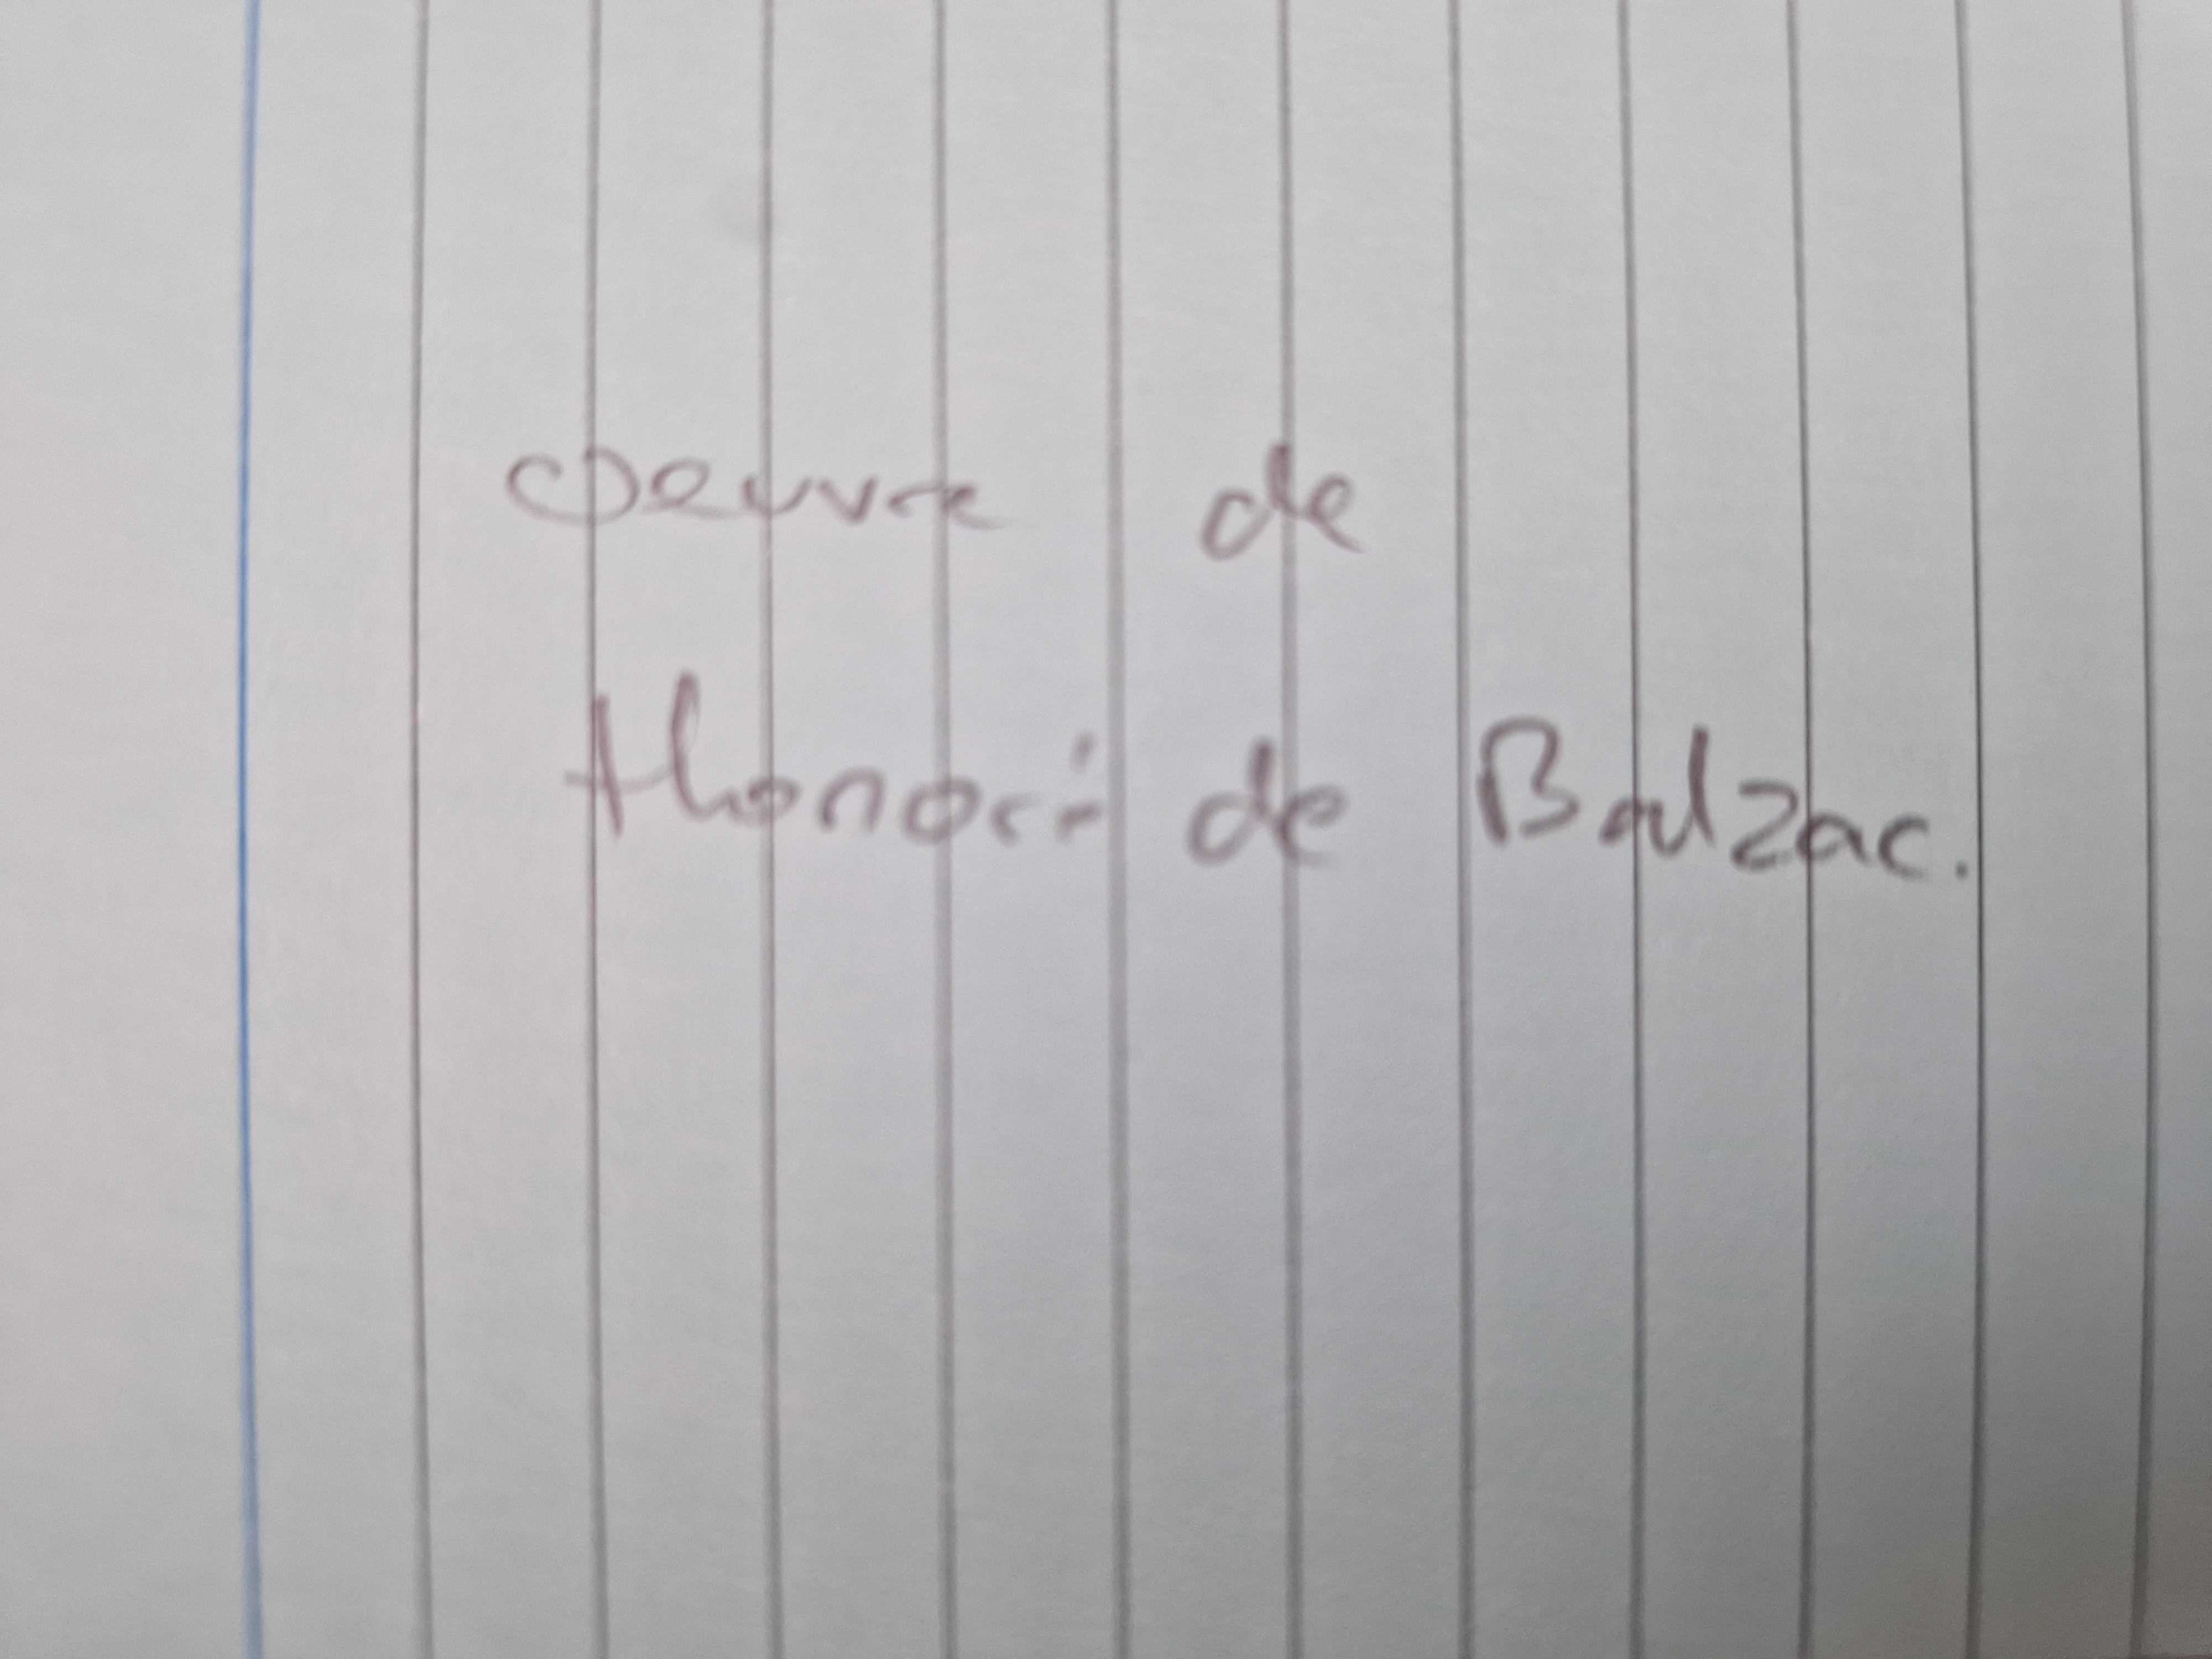 oeuvre de
Honoré de Balzac.